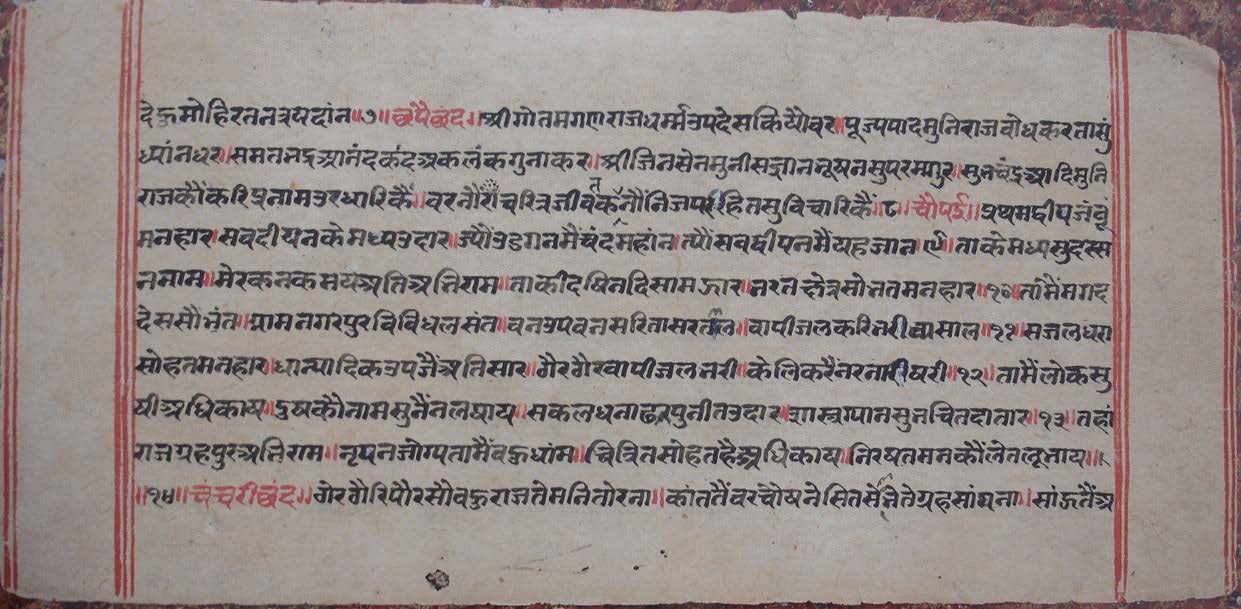 देऊ मोहि रतनत्रय दांन ॥७॥ छप्पै छंद ॥ श्री गोतम गणराज धर्म्म उपदेस कियौ वर । पूज्यपाद मुनिराज वोध कर तासुं
ध्यांन धर । समनतभद्र आनंद कंद अकलंक गुनाकर । श्री जिनसेन मुनीस ज्ञान भूषन सु परम गुर । सुभचंद्र आदि मुनि
राज कौं करि प्रनाम उर धारिकैं । वरनौं चरित्र जीवक तनौं निज पर हित सु विचारिकैं ॥८॥ चौपई ॥ प्रथम दीप जंवू
मनहार । सव दीपन के मध्य उदार । ज्यौं उडगन मैं चंद महांन । त्यौं सव दीपन मैं यह जान ॥९॥ ताके मध्य सुदस्स
न नाम । मेर कनक मय अति अभिराम । ताकी दषिन दिसा मझार । भरत क्षेत्र सोभत मनहार ॥१०॥ ता मैं मगद
देस सौभंत । ग्राम नगर पुर विविध लसंत । वन उपवन सरिता सर ताल । वापी जल करि भरी वासाल ॥११॥ सजल धरा
सोहत मनहार । धान्यादिक उपजैं अति सार । ठौर ठौर वापी जल भरी । केलि करैं नर नारी षरी ॥१२॥ ता मैं लोक सु
षी अधिकाय । दुष कौ नाम सुनैं न लषाय । सकल धनाढ्य पुनीत उदार । सुभ चित दातार ॥१३॥ तहां
राजग्रह पुर अभिराम । नृपन जोग्य ता मैं वऊ धांम । चित्रित सोहत है अधिकाय । निरषत मन कौं लेत लुभाय ॥
॥१४॥ चंचरी छंद ॥ गोर पौरि पौर सौ वऊ राजते मनि तोरना । कांत तैं वर चोष ने सित ते ग्रह सांघना । सांऊ तैं अ